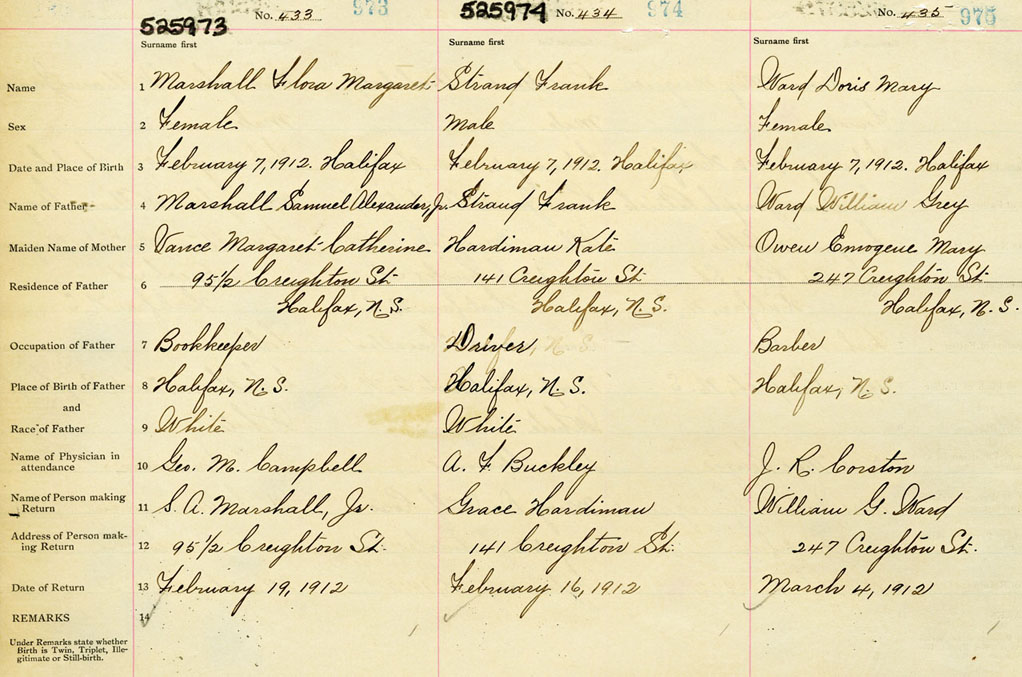 525973 No. 433 973 525974 No. 434 974 No. 435 975
Surname first Surname first Surname first
Name 1 Marshall Flora Margaret Strand Frank Ward Doris Mary
Sex 2 Female Male Female
Date and Place of Birth 3 February 7, 1912. Halifax February 7, 1912. Halifax February 7, 1912. Halifax
Name of Father 4 Marshall Samuel Alexander, Jr. Strand Frank Ward William Grey
Maiden Name of Mother 5 Vance Margaret Catherine Hardiman Kate Owen Emogene Mary
Residence of Father 6 95 1/2 Creighton St. 141 Creighton St. 247 Creighton St.
Halifax, N.S. Halifax, N.S. Halifax, N.S.
Occupation of Father 7 Bookkeeper Driver Barber
Place of Birth of Father 8 Halifax, N.S. Halifax, N.S. Halifax, N.S.
and
Race of Father 9 White White
Name of Physician in
attendance 10 Geo. M. Campbell A. F. Buckley J. R. Corston
Name of Person making
Return 11 S. A. Marshall, Jr. Grace Hardiman William G. Ward
Address of Person mak-
ing Return 12 95 1/2 Creighton St. 141 Creighton St. 247 Creighton St.
Date of Return 13 February 19, 1912 February 16, 1912 March 4, 1912
REMARKS 14
Under Remarks state whether
Birth is Twin, Triplet, Ille-
gitimate or Still-birth.